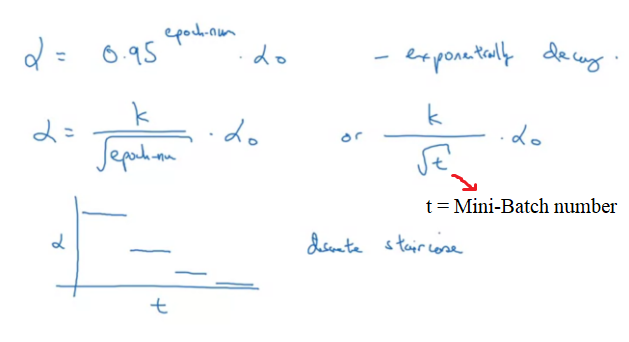 α = 0.95^epoch-num · α₀ – exponentially decay.
α = k / √epoch-num · α₀ or k / √t · α₀
t = Mini-Batch number
α
discrete staircase
t